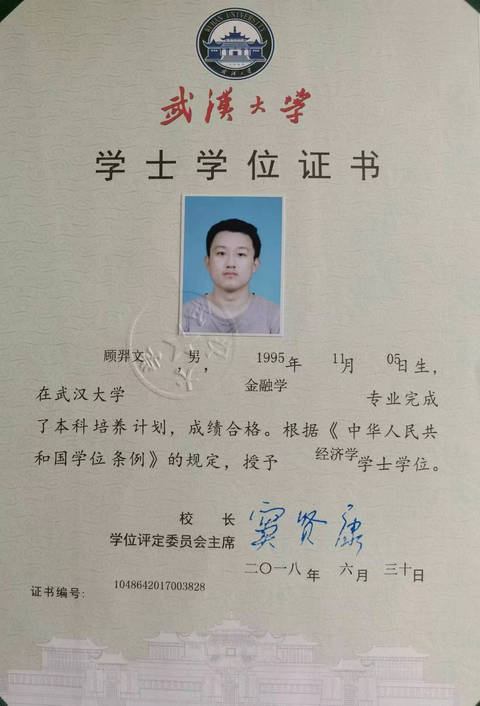 WUHAN UNIVERSITY
武汉大学
武漢大学
学士学位证书
顾羿文，男，1995年11月05日生，
在武汉大学 金融学 专业完成
了本科培养计划，成绩合格。根据《中华人民共
和国学位条例》的规定，授予 经济学 学士学位。
校 长
学位评定委员会主席
窦贤康
二〇一八年 六月 三十日
证书编号: 1048642017003828